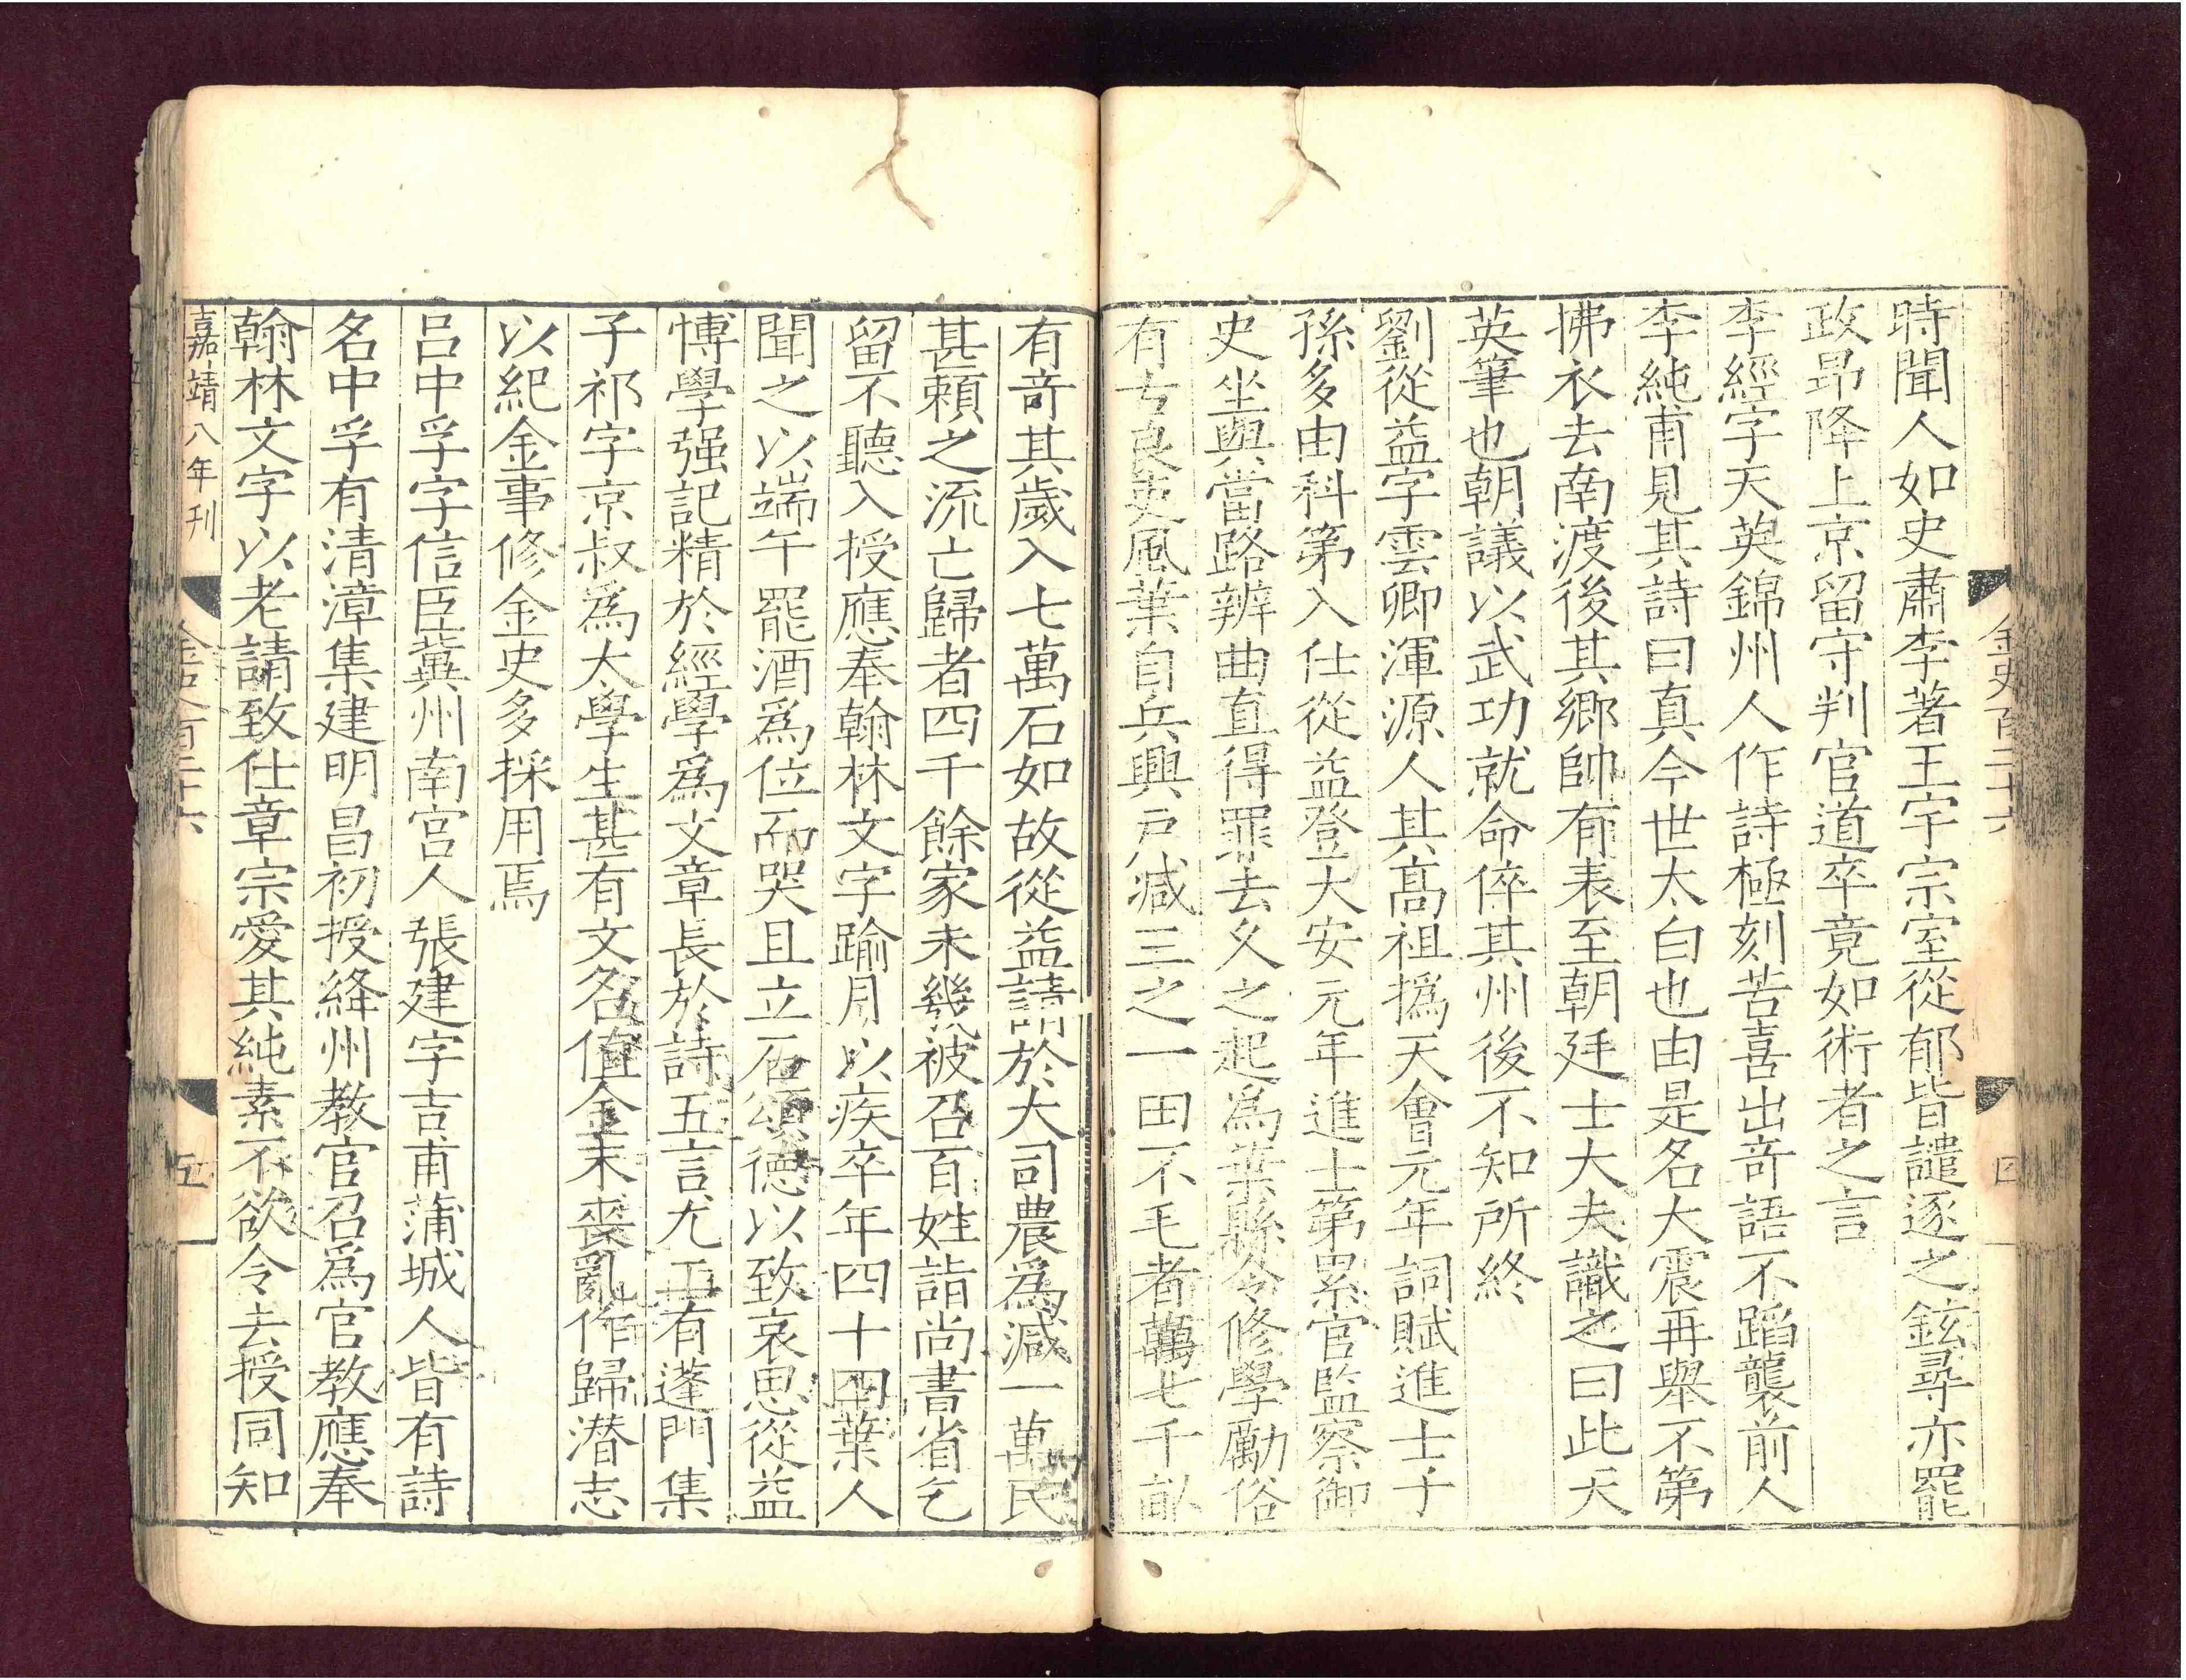 時聞人如史肅李著王宇宗室從郁皆譴逐之鉉尋亦罷
政昂降上京留守判官道卒竟如術者之言
李經字天英錦州人作詩極刻苦喜出奇語不蹈襲前人
李純甫見其詩曰真今世太白也由是名大震再舉不第
拂衣去南渡後其鄉帥有表至朝廷士大夫識之曰此天
英筆也朝議以武功就命倅其州後不知所終
劉從益字雲卿渾源人其高祖撝天會元年詞賦進士子
孫多由科第入仕從益登大安元年進士第累官監察御
史坐與當路辨曲直得罪去久之起為葉縣令修學勵俗
有古良吏風葉自兵興戶減三之一田不毛者萬七千畝
金史百二十六
四
有奇其歲入七萬石如故從益請於大司農為減一萬民
甚賴之流亡歸者四千餘家未幾被召百姓詣尚書省乞
留不聽入授應奉翰林文字踰月以疾卒年四十四葉人
聞之以端午罷酒為位而哭且立石頌德以致哀思從益
博學强記精於經學為文章長於詩五言尤工有蓬門集
子祁字京叔為太學生甚有文名值金末喪亂作歸潛志
以紀金事修金史多採用焉
呂中孚字信臣冀州南宮人張建字吉甫蒲城人皆有詩
名中孚有清漳集建明昌初授絳州教官召為官教應奉
翰林文字以老請致仕章宗愛其純素不欲令去授同知
嘉靖八年刊
金史百二十六
五